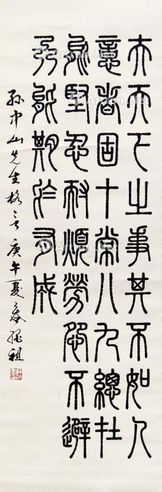 夫天下之事其不如人
意者固十常八九總在
能堅忍耐煩勞怨不避
乃能期於有成
孫中山先生格言庚午夏祖